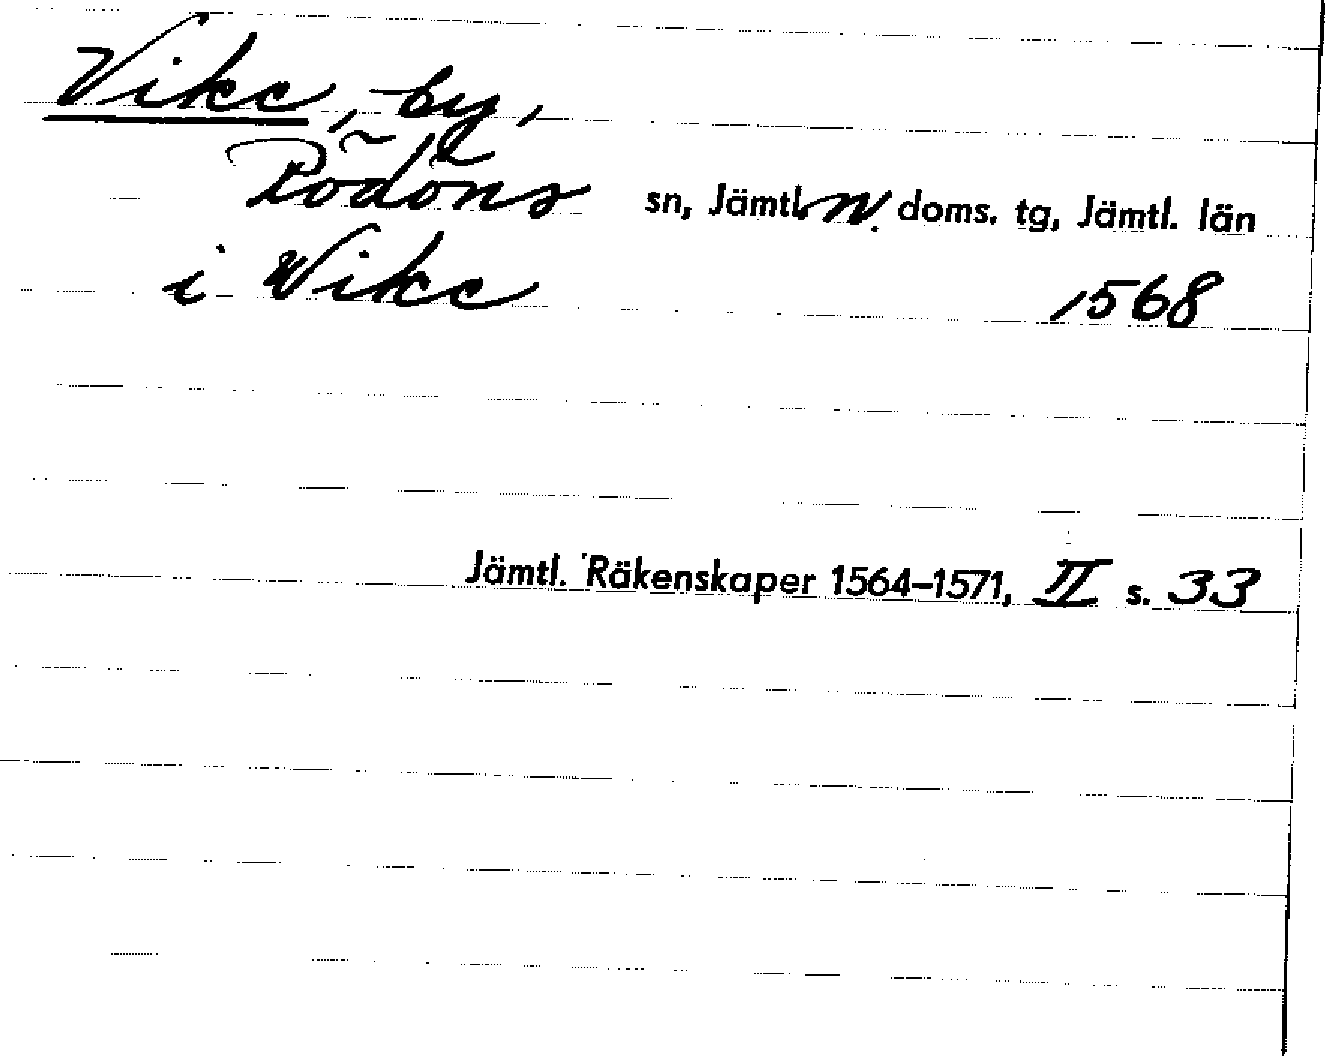 Vike, by,
Rödöns sn, Jämtl. N. doms. tg, Jämtl. län
i Wike 1568
Jämtl. Räkenskaper 1564–1571, II s. 33